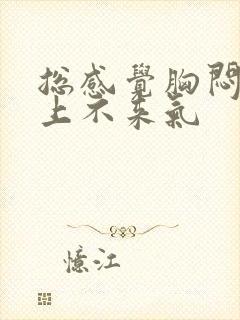 總感覺胸悶
上不來氣
憶江